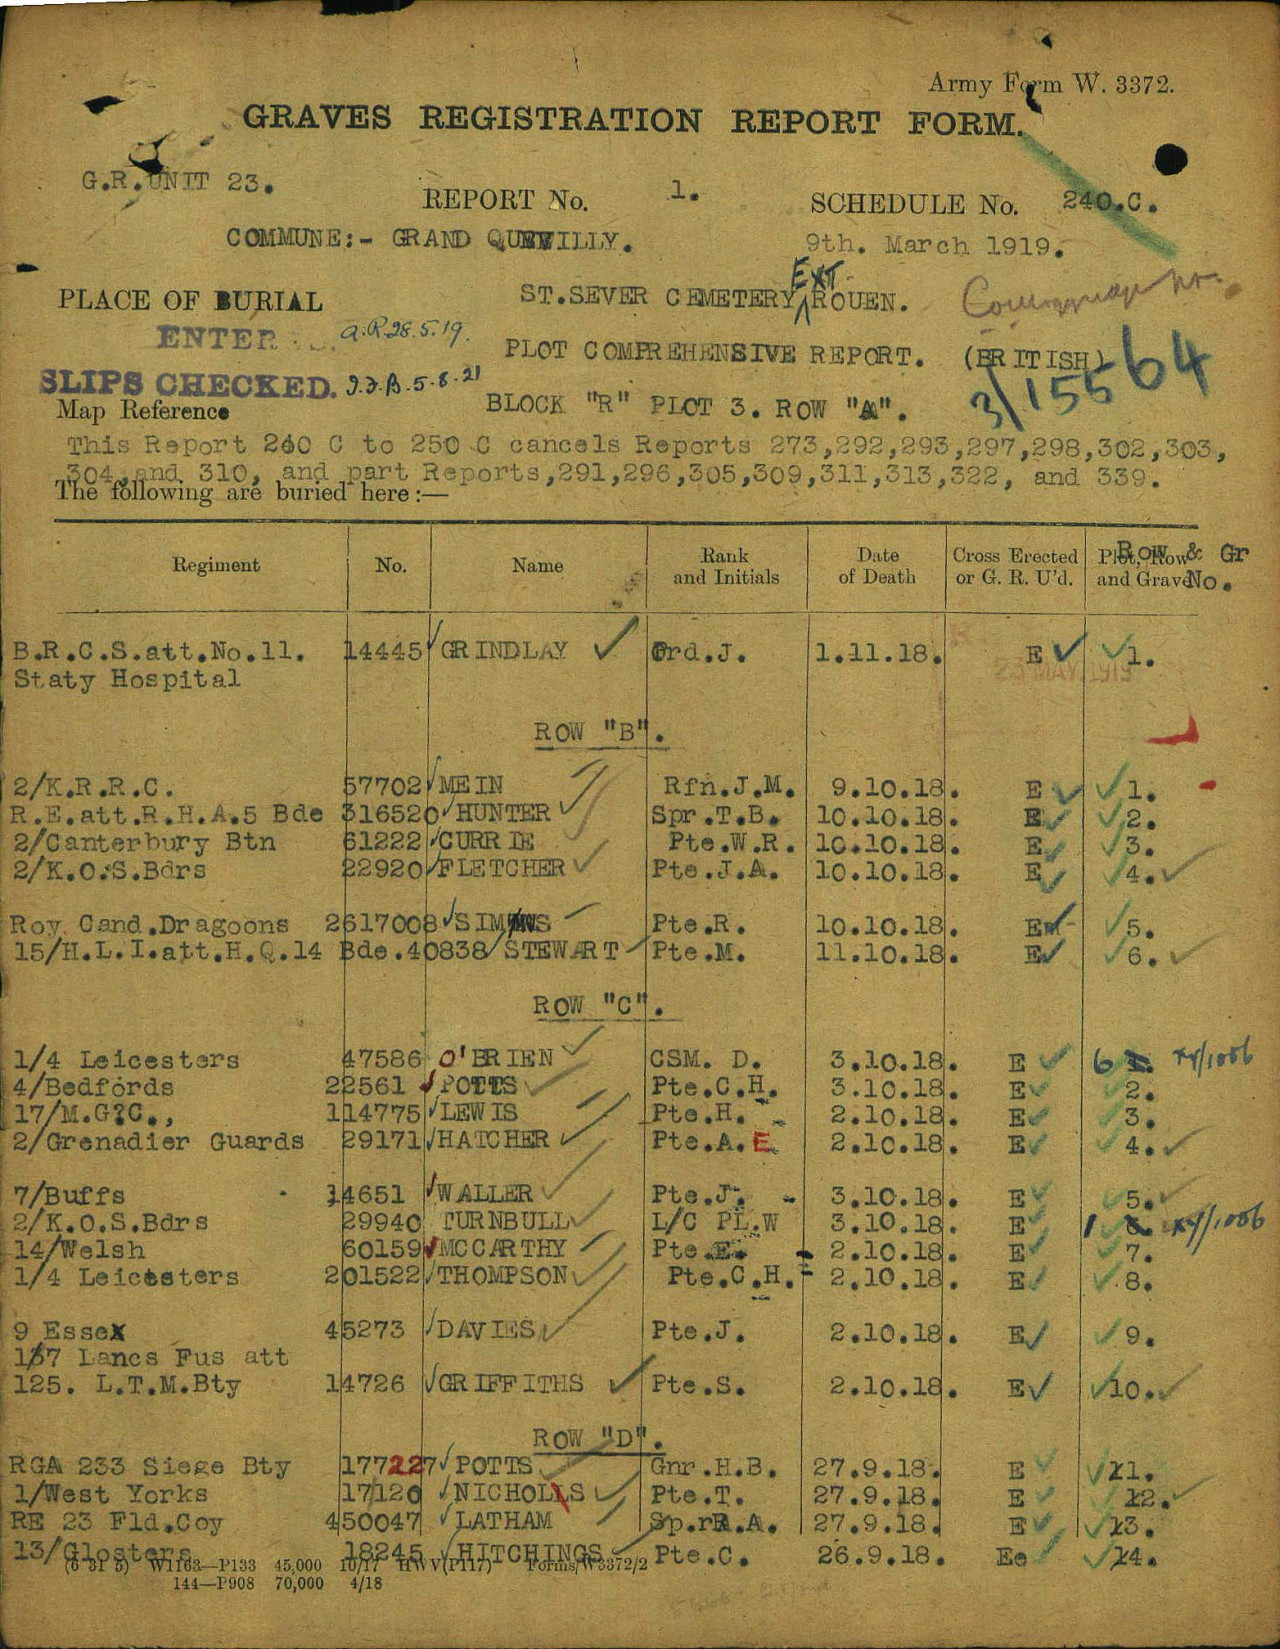 Army Form W. 3372.
GRAVES REGISTRATION REPORT FORM.
G.R.UNIT 23.
REPORT No. 1. SCHEDULE No. 240.C.
COMMUNE:- GRAND QUEVILLY. 9th. March 1919.
EXT.
PLACE OF BURIAL ST.SEVER CEMETERY, ROUEN.
ENTER a.R.28.5.19.
PLOT COMPREHENSIVE REPORT. (BRITISH)
3/15564
SLIPS CHECKED. 5.8.21
Map Reference BLOCK "R" PLOT 3. ROW "A".
This Report 240 C to 250 C cancels Reports 273,292,293,297,298,302,303,
304,and 310, and part Reports,291,296,305,309,311,313,322, and 339.
The following are buried here:—
Regiment No. Name Rank and Initials Date of Death Cross Erected or G. R. U'd. Plot, Row and Grave Row & Gr No.
B.R.C.S.att.No.11. 14445 GRINDLAY Ord.J. 1.11.18. E 1.
Staty Hospital
23 MAY 1919
ROW "B".
2/K.R.R.C. 57702 MEIN Rfn.J.M. 9.10.18. E 1.
R.E.att.R.H.A.5 Bde 316520 HUNTER Spr.T.B. 10.10.18. E 2.
2/Canterbury Btn 61222 CURRIE Pte.W.R. 10.10.18. E 3.
2/K.O.S.Bdrs 22920 FLETCHER Pte.J.A. 10.10.18. E 4.
Roy Cand.Dragoons 2617008 Pte.R. 10.10.18. E 5.
15/H.L.I.att.H.Q.14 Bde.40838 STEWART Pte.M. 11.10.18. E 6.
ROW "C".
1/4 Leicesters 47586 O'BRIEN CSM. D. 3.10.18. E 6
4/Bedfords 22561 POTTS Pte.C.H. 3.10.18. E 2.
17/M.G?C., 114775 LEWIS Pte.H. 2.10.18. E 3.
2/Grenadier Guards 29171 HATCHER Pte.A.E 2.10.18. E 4.
7/Buffs 14651 WALLER Pte.J. 3.10.18. E 5.
2/K.O.S.Bdrs 29940 TURNBULL L/C P.L.W 3.10.18. E 1
14/Welsh 60159 MCCARTHY Pte.E. 2.10.18. E 7.
1/4 Leicesters 201522 THOMPSON Pte.C.H. 2.10.18. E 8.
9 Essex 45273 DAVIES Pte.J. 2.10.18. E 9.
Lancs Fus att
125. L.T.M.Bty 14726 GRIFFITHS Pte.S. 2.10.18. E 10.
ROW "D".
RGA 233 Siege Bty 177227 POTTS Gnr.H.B. 27.9.18. E 1.
1/West Yorks 17120 NICHOLLS Pte.T. 27.9.18. E 2.
RE 23 Fld.Coy 450047 LATHAM Sp.rR.A. 27.9.18. E 3.
13/Glosters 18245 HITCHINGS Pte.C. 26.9.18. Ee 4.
(6 31 5) W1163—P133 45,000 10/17 HW V(P117) Forms/W3372/2
144—P908 70,000 4/18